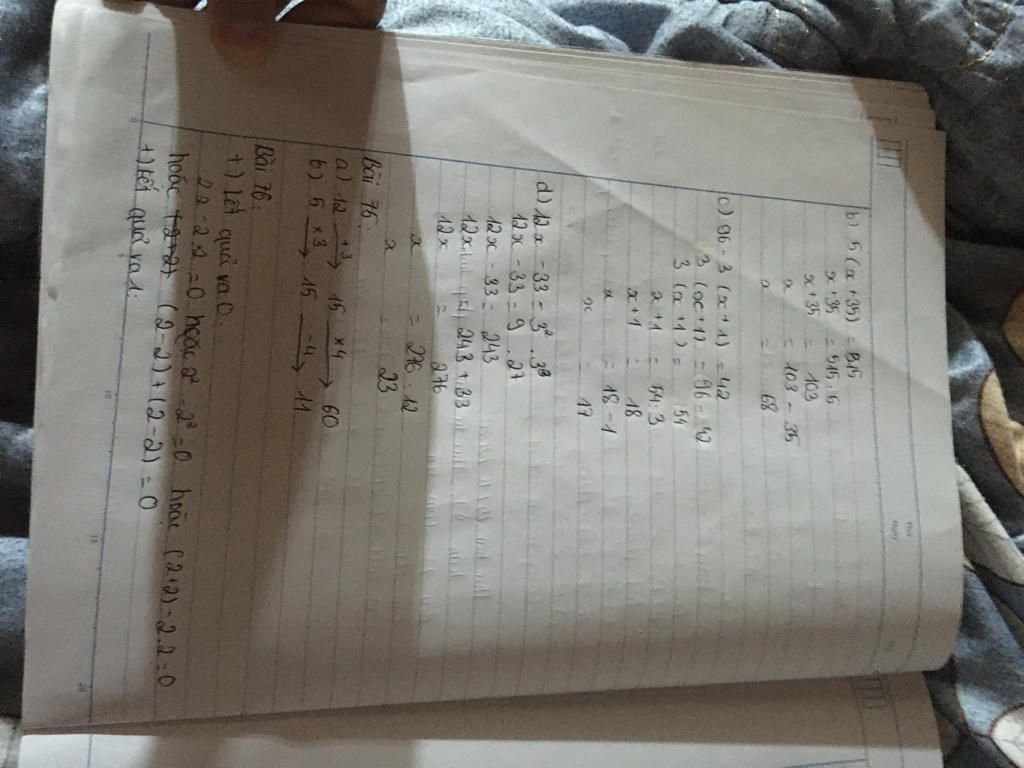 b) 5 (x + 35) = 515
x + 35 = 515 : 5
x + 35 = 103
x = 103 - 35
x = 68
c) 96 - 3 (x + 1) = 42
3 (x + 1) = 96 - 42
3 (x + 1) = 54
x + 1 = 54 : 3
x + 1 = 18
x = 18 - 1
x = 17
d) 12x - 33 = 3² . 3³
12x - 33 = 9 . 27
12x - 33 = 243
12x = 243 + 33
12x = 276
x = 276 : 12
x = 23
Bài 75.
a) 12 +3 → 15 ×4 → 60
b) 5 ×3 → 15 -4 → 11
Bài 76:
+) Kết quả ra 0:
2.2 - 2.2 = 0 hoặc 2² - 2² = 0 hoặc (2+2) - 2.2 = 0
hoặc (2 - 2) + (2 - 2) = 0
+) Kết quả ra 1: